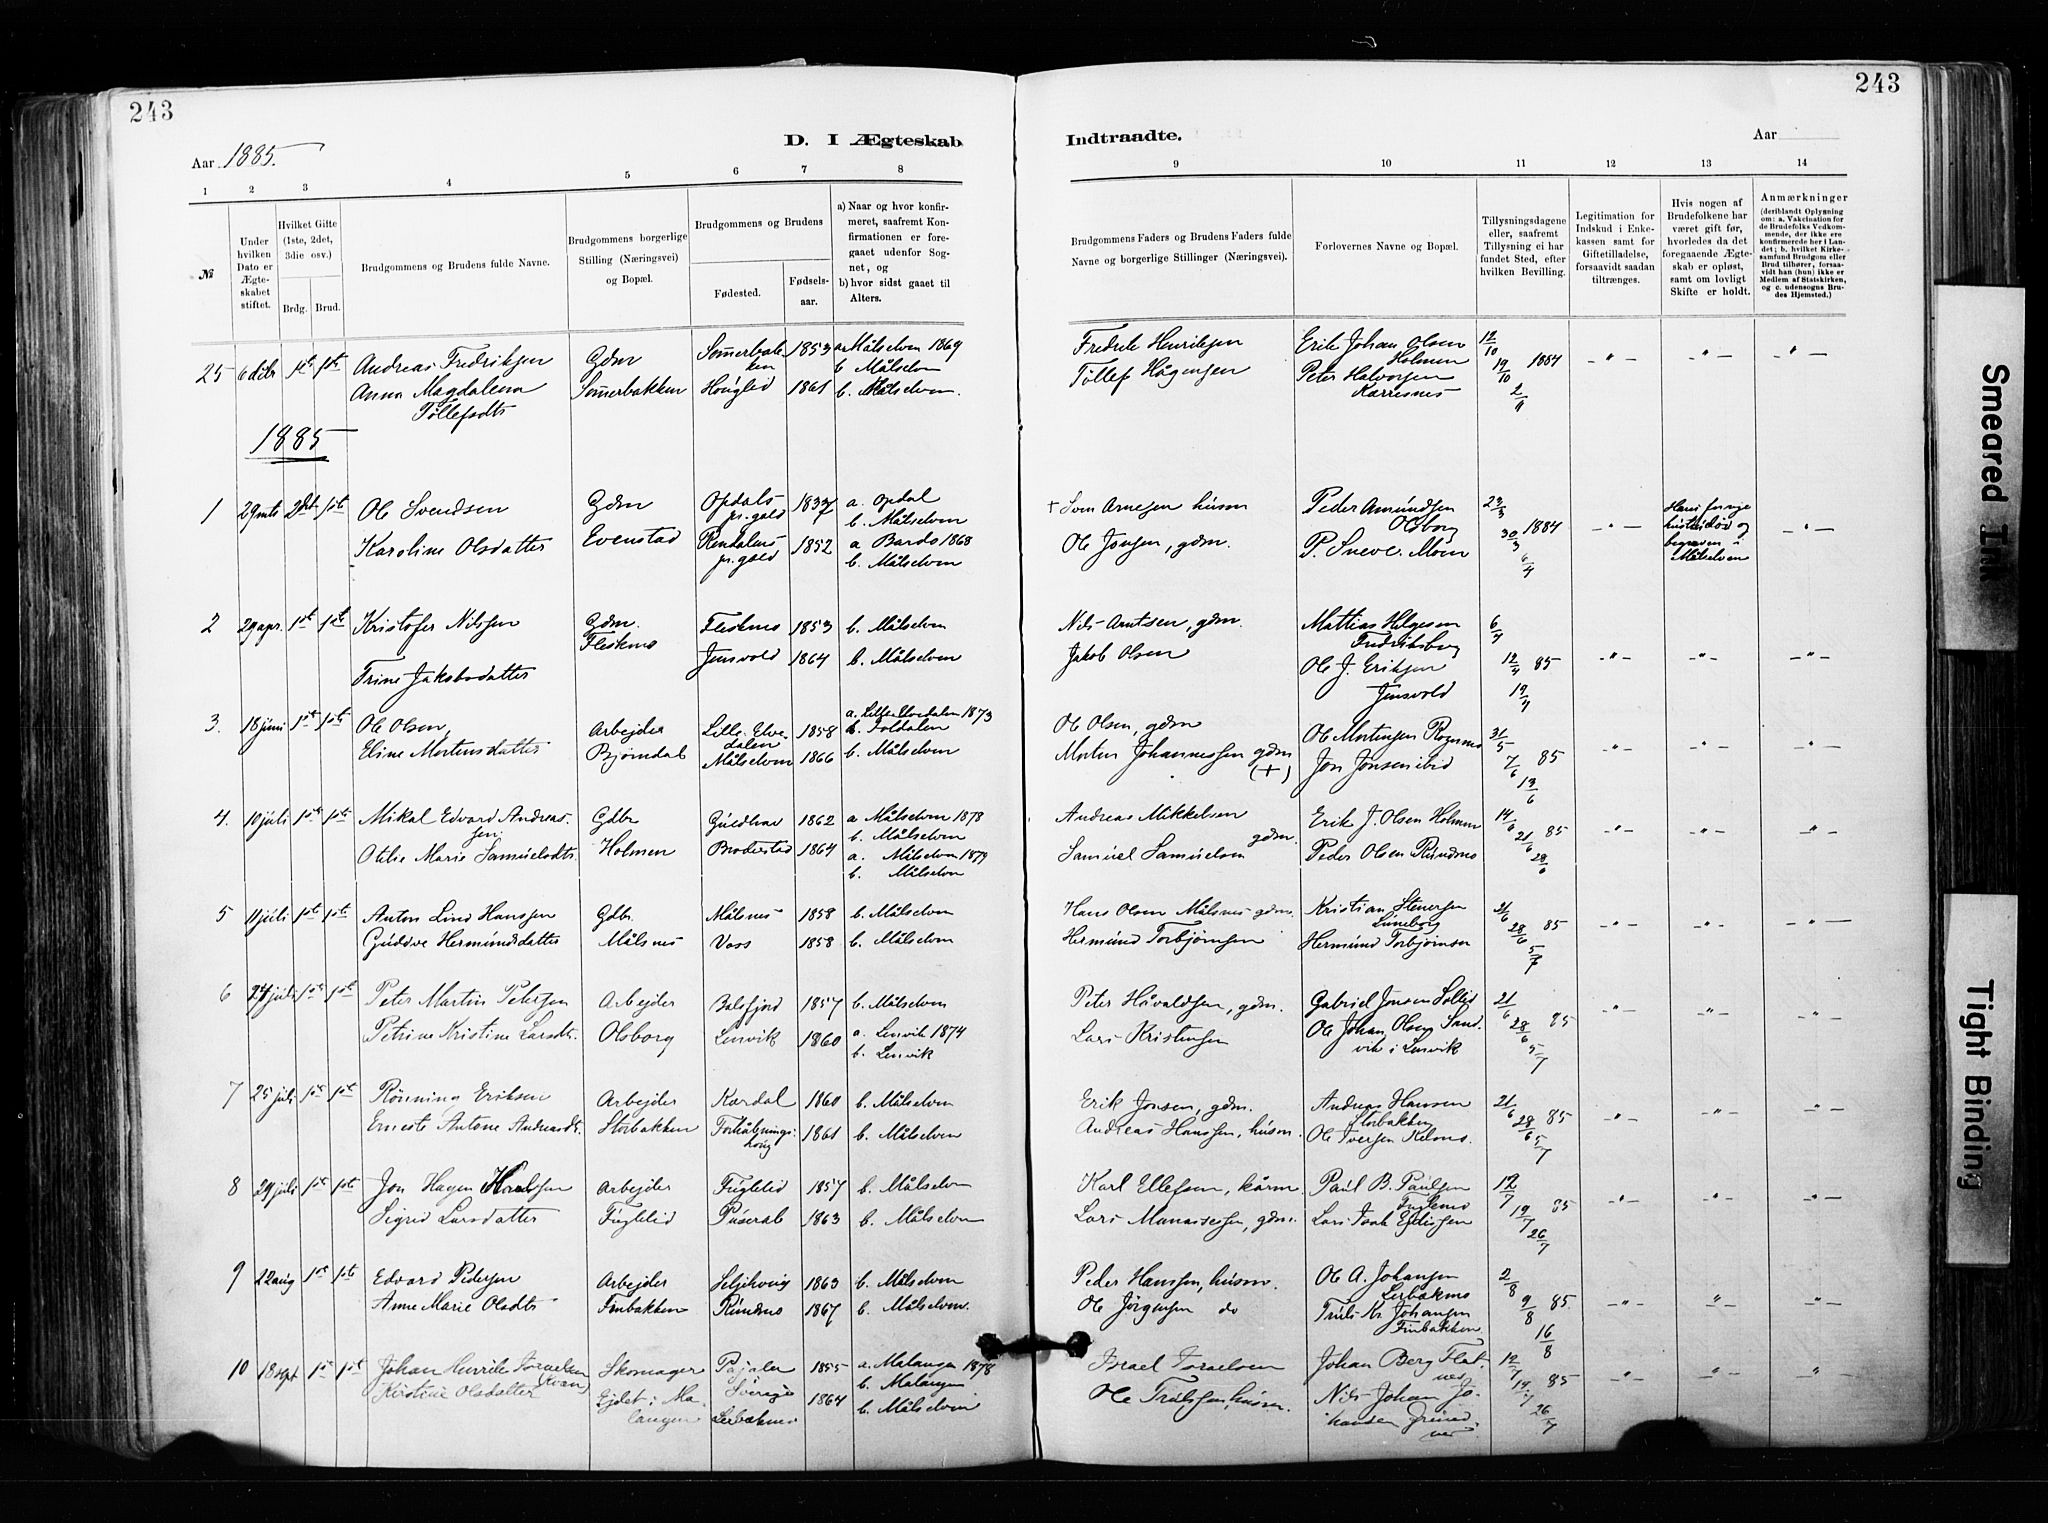 243
243
D. I Ægteskab
Indtraadte.
Aar 1885.
Aar
1 2 3 4 5 6 7 8
9 10 11 12 13 14
№
Under hvilken Dato er Ægteskabet stiftet.
Hvilket Gifte (1ste, 2det, 3die osv.)
Brdg. Brud.
Brudgommens og Brudens fulde Navne.
Brudgommens borgerlige Stilling (Næringsvei) og Bopæl.
Brudgommens og Brudens
Fødested.
Fødselsaar.
a) Naar og hvor konfirmeret, saafremt Konfirmationen er foregaaet udenfor Sognet, og
b) hvor sidst gaaet til Alters.
Brudgommens Faders og Brudens Faders fulde Navne og borgerlige Stillinger (Næringsvei).
Forlovernes Navne og Bopæl.
Tillysningsdagene eller, saafremt Tillysning ei har fundet Sted, efter hvilken Bevilling.
Legitimation for Indskud i Enkekassen samt for Giftetilladelse, forsaavidt saadan tiltrænges.
Hvis nogen af Brudefolkene har været gift før, hvorledes da det foregaaende Ægteskab er opløst, samt om lovligt Skifte er holdt.
Anmærkninger
(deriblandt Oplysning om: a. Vakcination for Brudefolks Vedkommende, der ikke ere konfirmerede her i Landet; b. hvilket Kirkesamfund Brudgom eller Brud tilhører, forsaavidt han (hun) ikke er Medlem af Statskirken, og c. udensogns Brudes Hjemsted.)
25 6 dcbr 1ste 1ste Andreas Fredriksen Gdm Sommerbakken 1853 a. Målselven 1869 Fredrik Henriksen Erik Johan Olsen Holmen 12/10
b. Målselven 19/10 1884 -"- -"- -"-
Anna Magdalena Tøllefsdtr Sommerbakken Houglid 1861 b. Målselven. Tøllef Hågensen Peter Halvorsen Karresnes 2/11
1885
1 29 mts 2det 1ste Ole Svendsen Gdm Opdals pr.gjeld 1837 a. Opdal b. Målselven + Sven Arnesen husm Peder Amundsen Olsborg 23/3
Karoline Olsdatter Evenstad Rendalens pr.gjeld 1852 a Bardo 1868 b. Målselven Ole Jonsen, gdm. P. Sneve. Moen 30/3 1884 6/4 -"- Hans forrige hustru død og begraven i Målselven -"-
2 29 apr. 1ste 1ste Kristofer Nilssen Gdm. Fleskmo Fleskmo 1853 b. Målselven Nils Arntsen, gdm. Mattias Helgesen Fredriksberg 6/4
Trine Jakobsdatter Jensvold 1864 b. Målselven Jakob Olsen Ole J. Eriksen Jensvold 12/4 85 19/4 -"- -"- -"-
3. 18 juni 1ste 1ste Ole Olsen Arbejder Lille-Elvedalen 1858 a. Lille-Elvedalen 1873 b. Foldalen Ole Olsen, gdm Ole Mortensen Rognmo 31/5
Eline Mortensdatter Bjørndal Målselven 1866 b. Målselven Morten Johannessen gdm (+) Jon Jonsen ibid 7/6 85 13/6 -"- -"- -"-
4. 10 juli 1ste 1ste Mikal Edvard Andreassen Gdbr Guldhav 1862 a Målselven 1878 b. Målselven Andreas Mikkelsen gdm. Erik J. Olsen Holmen 14/6
Otilie Marie Samuelsdtr. Holmen Broderstad 1864 a. Målselven 1879 b. Målselven Samuel Samuelsen Peder Olsen Rundmo 21/6 85 28/6 -"- -"- -"-
5 11 juli 1ste 1ste Anton Lind Hanssen Gdbr. Målsnes 1858 b. Målselven Hans Olsen Målsnes gdm. Kristian Stenersen Luneborg 21/6
Guddve Hermundsdatter Målsnes Voss 1858 b. Målselven Hermund Torbjørnsen Hermund Torbjørnsen 28/6 85 5/7 -"- -"- -"-
6 24 juli 1ste 1ste Peter Martin Petersen Arbejder Balsfjord 1857 b. Målselven Peter Håvaldsen, gdm. Gabriel Jensen Sollid 21/6
Petrine Kristine Larsdtr. Olsborg Lenvik 1860 a. Lenvik 1874 b. Lenvik Lars Kristensen Ole Johan Olsen Sandvik i Lenvik 28/6 85 5/7 -"- -"- -"-
7 25 juli 1ste 1ste Rønning Eriksen Arbejder Kardal 1860 b. Målselven Erik Jonsen, gdm. Andreas Hansen Storbakken 21/6
Erneste Antone Andreasdt. Storbakken Forhåbningshoug 1861 b. Målselven Andreas Hanssen, husm. Ole Iversen Kelmo. 28/6 85 5/7 -"- -"- -"-
8 29 juli 1ste 1ste Jon Hagen Karlsen Arbejder Fuglelid 1857 b. Målselven Karl Ellefsen, kårm. Paul B. Paulsen Fuglemo 12/7
Sigrid Larsdatter Fuglelid Puserab 1863 b. Målselven Lars Manassessen, gdm. Lars Isak Eliassen 19/7 85 26/7 -"- -"- -"-
9 22 aug 1ste 1ste Edvard Pedersen Arbejder Seljehoug 1863 b. Målselven Peder Hanssen, husm. Ole A. Johansen Lerbækmo 2/8
Anne Marie Olsdtr Finbakken Rundmo 1867 b. Målselven. Ole Jørgensen do Truls Kr. Johansen Finbakken 9/8 85. 16/8 -"- -"- -"-
10 18 sept 1ste 1ste Johan Henrik Israelsen (kvæn) Skomager Pajala Sverige 1855 a. Malangen 1878 b. Malangen Israel Israelsen Johan Berg Flatnes 12/7
Kristine Olsdatter Gjelet i Malangen Lerbækmo 1864 b. Målselven Ole Trulssen, husm. Nils Johan Johansen 19/7 85 26/7 -"- -"- -"-
Smeared Ink
Tight Binding